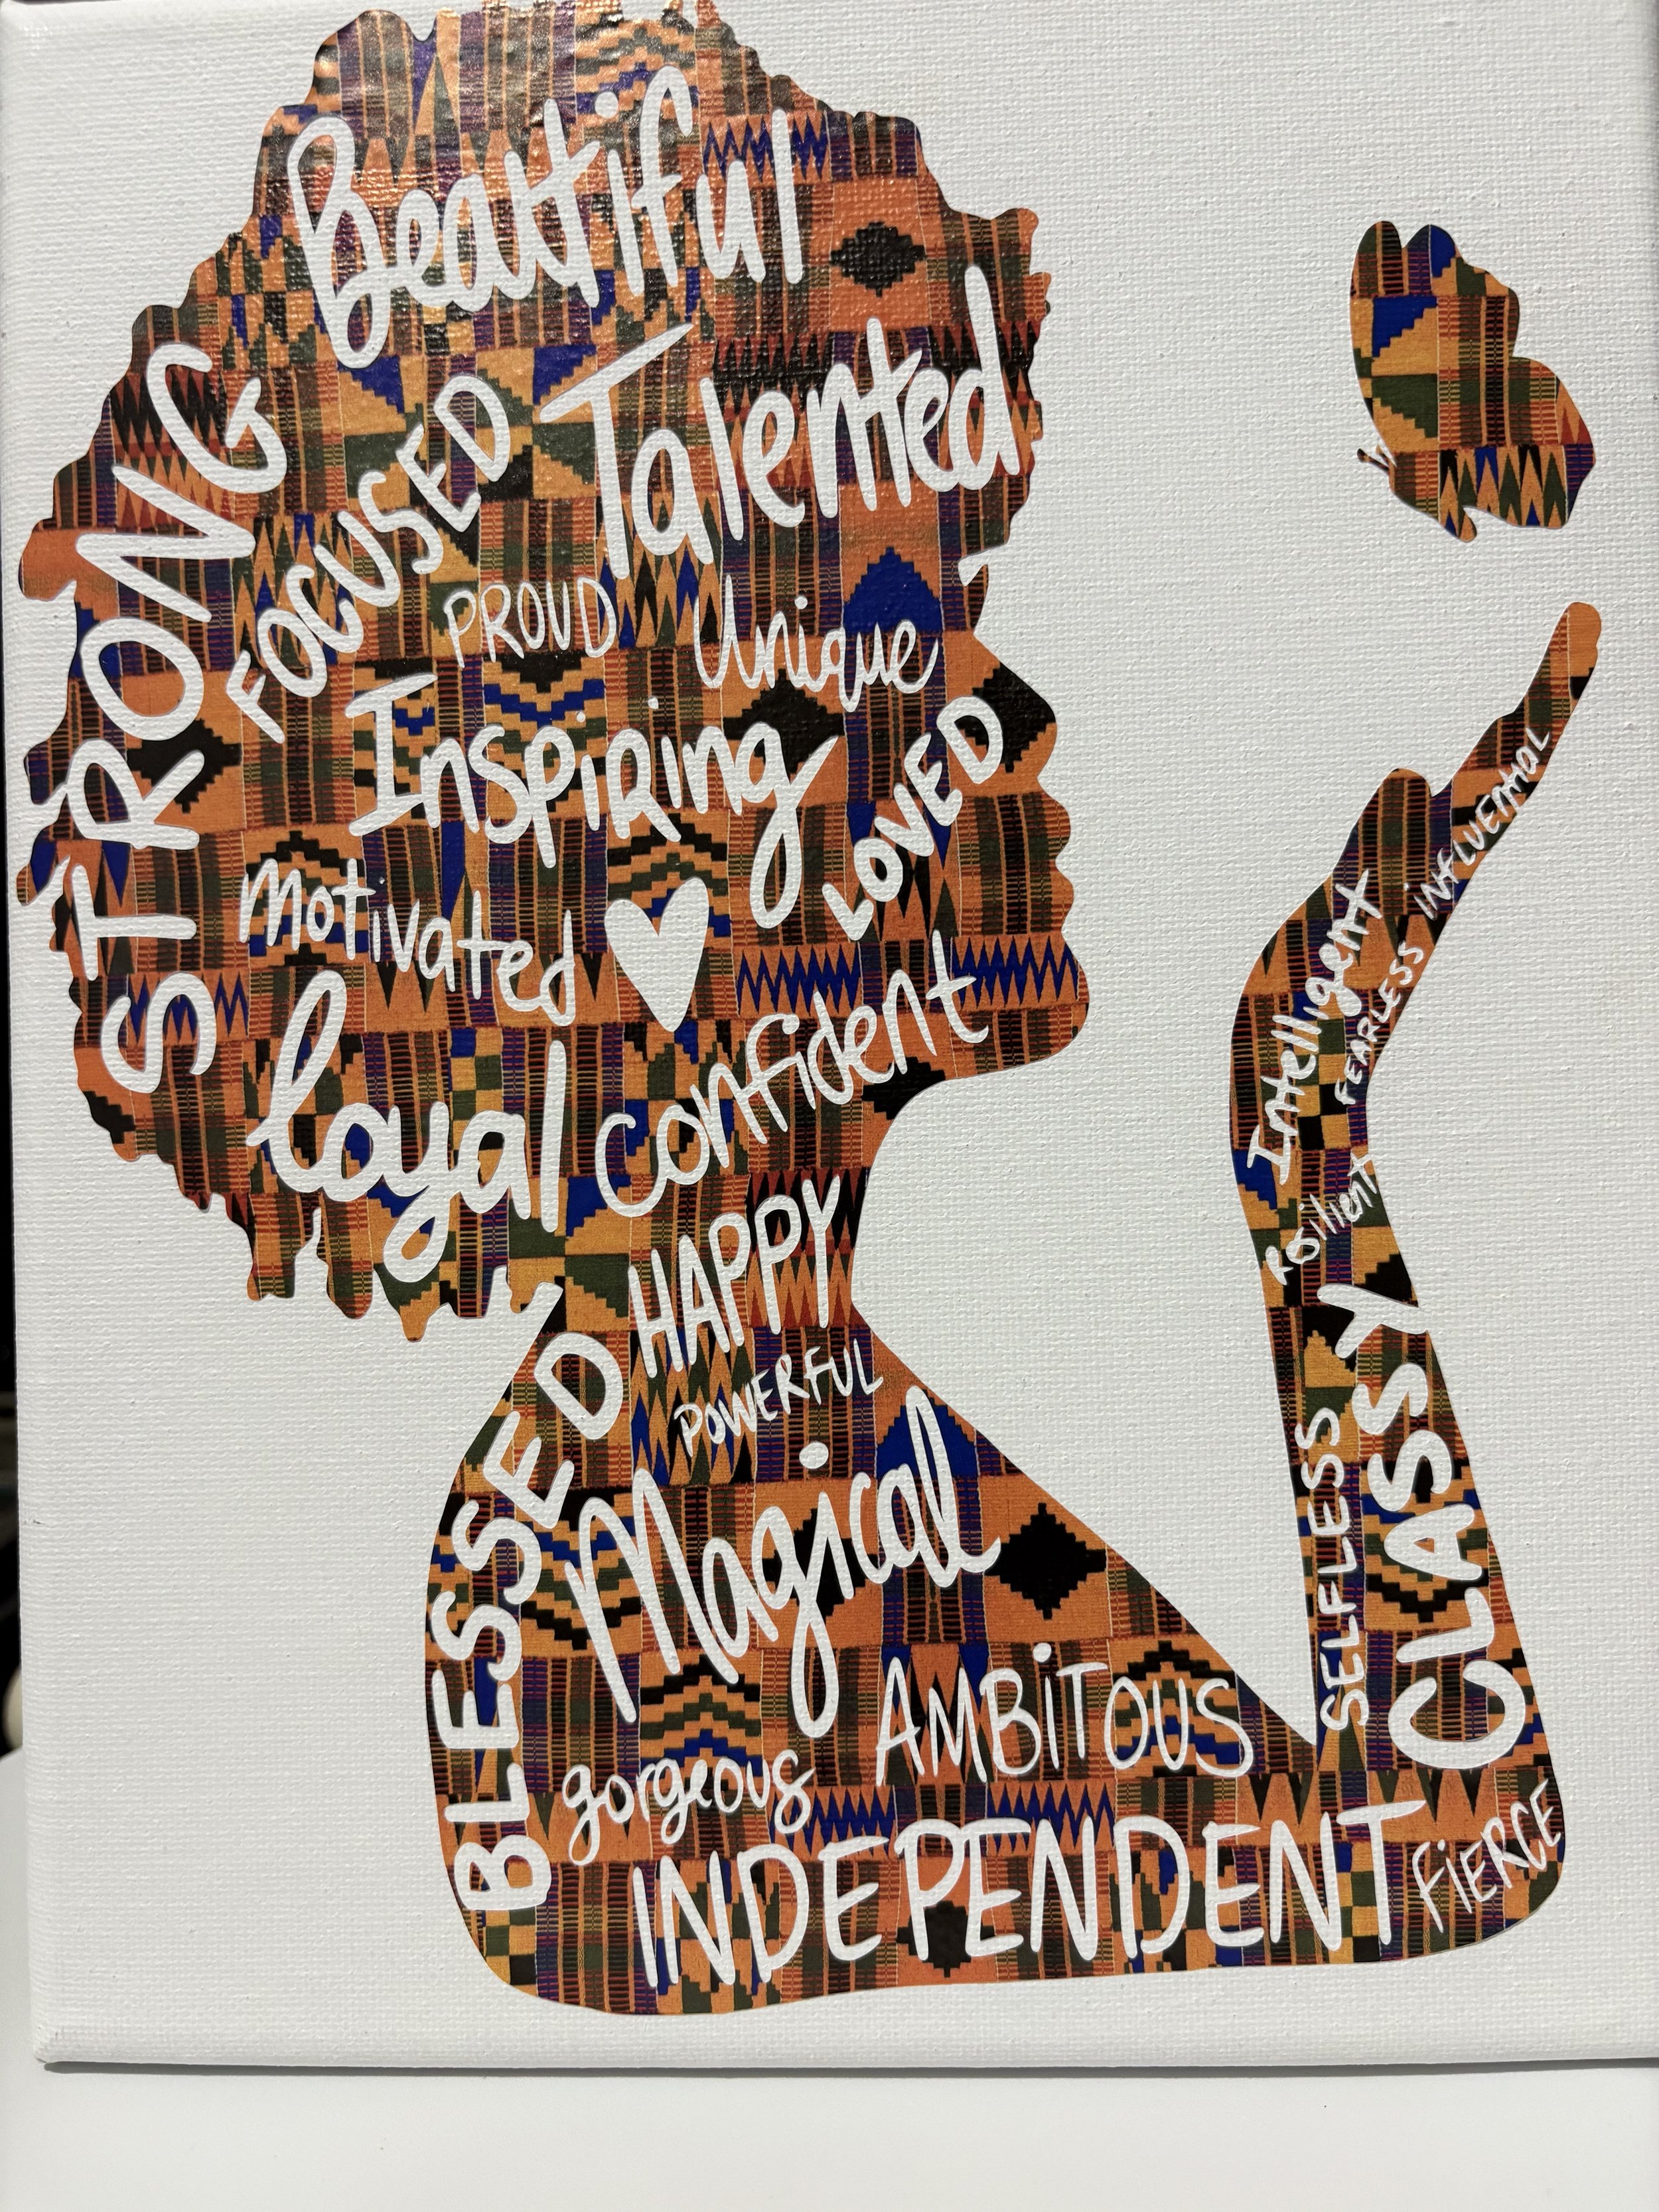 Beautiful
Talented
STRONG
FOCUSED
PROUD
Unique
Inspiring
LOVED
Motivated
loyal
Confident
HAPPY
POWERFUL
BLESSED
Magical
AMBiTOUS
gorgeous
INDEPENDENT
FiERCE
CLASSY
SELFLESS
Resilient
Intelligent
FEARLESS
iNFLUENTiAL